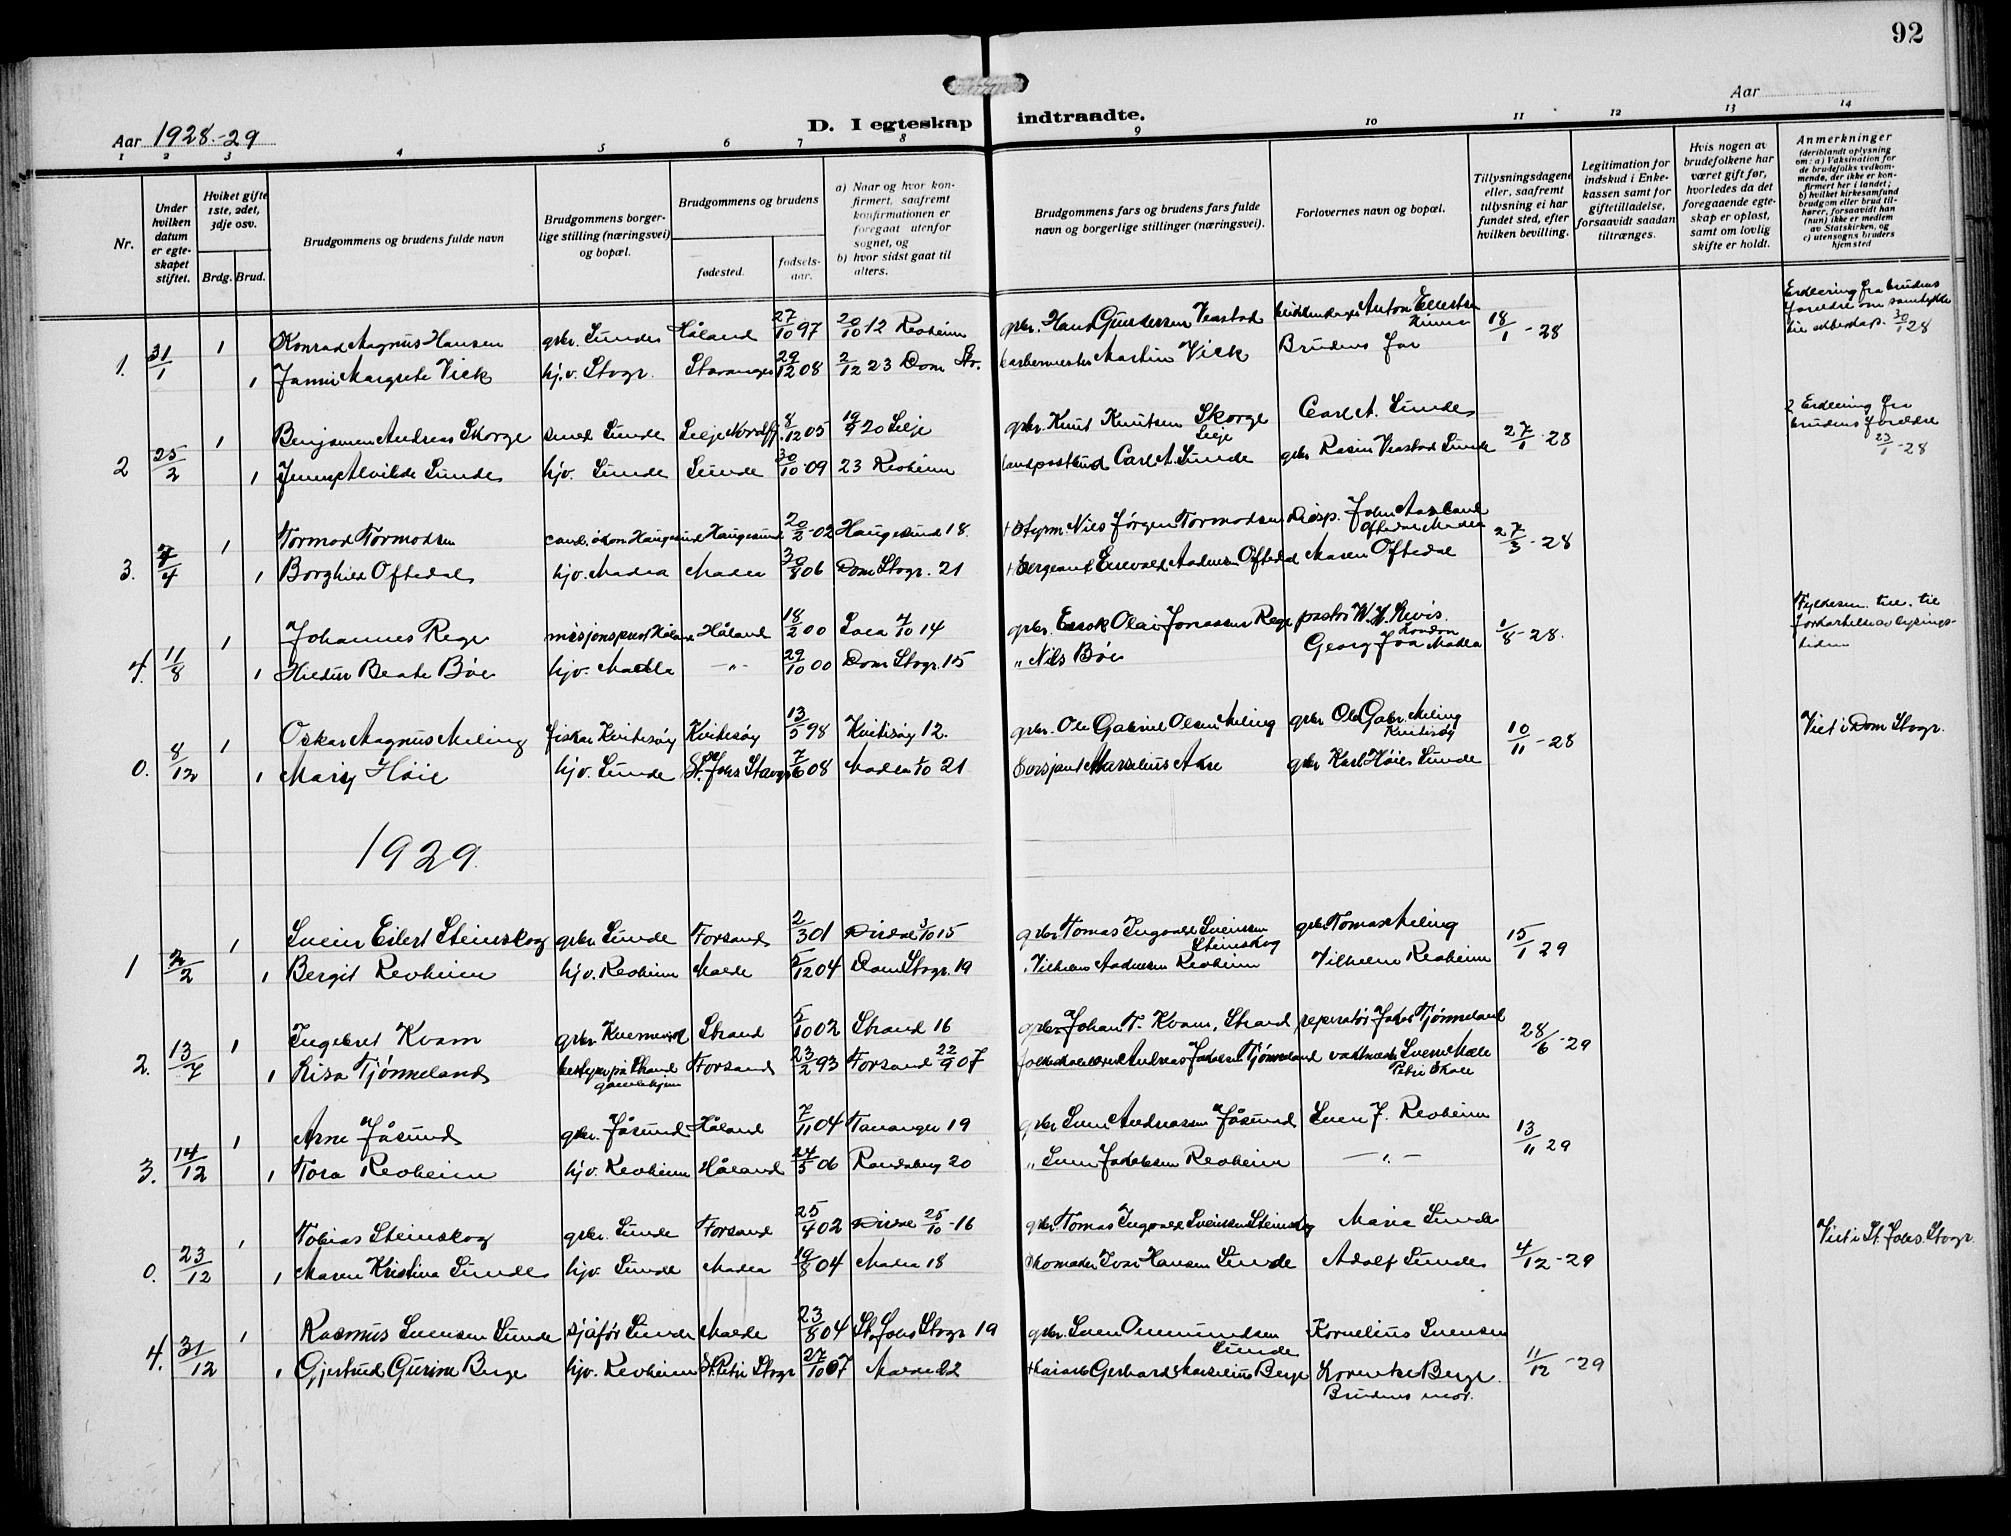 92
Aar 1928.-29
D. I egteskap indtraadte.
Aar
1 2 3 4 5 6 7 8 9 10 11 12 13 14
Nr.
Under hvilken datum er egteskapet stiftet.
Hviket gifte 1ste, 2det, 3dje osv.
Brdg. Brud.
Brudgommens og brudens fulde navn
Brudgommens borgerlige stilling (næringsvei) og bopæl.
Brudgommens og brudens
fødested.
fødselsaar.
a) Naar og hvor konfirmert, saafremt konfirmationen er foregaat utenfor sognet, og
b) hvor sidst gaat til alters.
Brudgommens fars og brudens fars fulde navn og borgerlige stillinger (næringsvei).
Forlovernes navn og bopæl.
Tillysningsdagene eller, saafremt tillysning ei har fundet sted, efter hvilken bevilling.
Legitimation for indskud i Enkekassen samt for giftetilladelse, forsaavidt saadan tiltrænges.
Hvis nogen av brudefolkene har været gift før, hvorledes da det foregaaende egteskap er opløst, samt om lovlig skifte er holdt.
Anmerkninger
(deriblandt oplysning om: a) Vaksination for de brudefolks vedkommende, der ikke er konfirmert her i landet; b) hvilket kirkesamfund brudgom eller brud tilhører, forsaavidt han (hun) ikke er medlem av Statskirken, og c) utensogns bruders hjemsted
1. 31/1 1 Konrad Magnus Hansen gbr. Sunde Håland 27/10 97 20/10 12 Revheim gbr. Hans Gundersen Anton Ellertsen 18/1 - 28
1 Margrete Vick hj.v. Stvgr. Stavanger 29/12 08 2/12 23 Dom St. Martin Vick Brudens far
Erklæring fra brudens foreldre om samtykke til ekteskap. 30/1 28
2 25/2 1 Benjamin Andreas Skorge Sunde Selje Nordfj. 8/12 05 19/9 20 Selje gbr. Knut Knutsen Skorge Selje Carl A. Sunde 27/1 - 28
1 Jenny Alvilde Sunde hjv. Sunde Sunde 30/10 09 23 Revheim landpostbud Carl A. Sunde gbr Sunde
2 Erklæring fra brudens foreldre 23/1 - 28
3. 7/4 1 Tormod Tormodsen cand. økon. Haugesund Haugesund 20/2 - 02 Haugesund 18. + Styrm. Nils Jørgen Tormodsen Disp. John 27/3 - 28
1 Borghild Oftedal hjv. Madla Madla 30/8 06 Dom Stvgr. 21 + Sergeant Oftedal Maren Oftedal
4. 11/8 1 Johannes Rege misjonsprest Håland Håland 18/2 00 10 14 gbr. Olai Jonassen Rege pastor London 1/8 - 28.
1 Beate Bøe hjv. Madla -"- 29/10 00 Dom Stvgr. 15 " Nils Bøe Georg Joa Madla
til forkortelse av lysingstiden
0. 8/12 1 Oskar Magnus Meling fisker Kvitisøy Kvitisøy 13/5 98 Kvitisøy 12. gbr. Ole Gabriel Olsen Meling gbr Ole Gabr. Meling Kvitisøy 10/11 - 28 Viet i Dom Stvgr.
1 Mary Høie hjv. Sunde St. Johs Stavgr 7/6 08 Madla 10 21 Sersjant gbr Karl Høie Sunde
1929.
1 2/2 1 Svein Eilert Steinskog gbr. Sunde Forsand 2/3 01 Dirdal 3/10 15 gbr. Tomas Ingvald Sveinsen Steinskog gbr. Tomas Meling 15/1 29
1 Bergit Revheim hjv. Revheim Malde 5/12 04 Dom Stvgr. 19 " Vilhelm Andersen Revheim Vilhelm Revheim
2. 13/7 1 Ingebret Kvam gbr. Strand 5/10 02 Strand 16 gbr. Johan T. Kvam, Strand reperatør Jakob Tjønneland 28/6 - 29
1 Lisa Tjønneland bestyrer på Strand gamlehjem Forsand 23/2 93 Forsand 22/9 07 Andreas Jakobsen Tjønneland vaktmester Svein Male Petri skole
3. 14/12 1 Arne Jåsund gbr. Jåsund Håland 7/11 04 Tananger 19 gbr Sven Andreassen Jåsund Sven J. Revheim 13/11 29
1 Tora Revheim hjv. Revheim Håland 24/5 06 Randaberg 20 " Sven Jakobsen Revheim -"-
0. 23/12 1 Tobias Steinskog gbr. Sunde Forsand 25/4 02 Dirdal 25/10 - 16 gbr Tomas Ingvald Sveinsen Steinskog Maria Sunde 4/12 - 29 Viet i St. Johs. Stvgr.
1 Maren Kristine Sunde hjv. Sunde Madla 19/8 04 Madla 18 Skomaker Iver Hansen Sunde Adolf Sunde
4. 31/12 1 Rasmus Svensen Sunde sjåfør Sunde Malde 23/8 04 St. Johs Stvgr 19 gbr. Sven Ommundsen Sunde Kornelius Svensen 11/12 - 29
1 Gjertrud Gurine Berge hjv. Revheim St. Petri Stvgr 27/10 07 Malde 22 Gerhard Marselius Berge Lorentse Berge. Brudens mor.